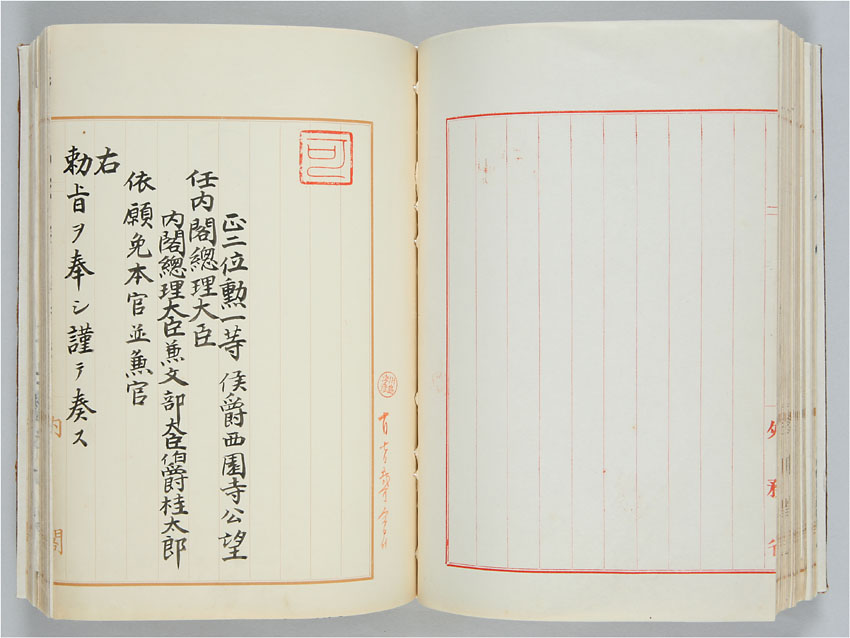 外務省
可
正二位勲一等侯爵西園寺公望
任内閣總理大臣
内閣總理大臣兼文部大臣伯爵桂太郎
依願免本官並兼官
右
勅旨ヲ奉シ謹テ奏ス
内閣